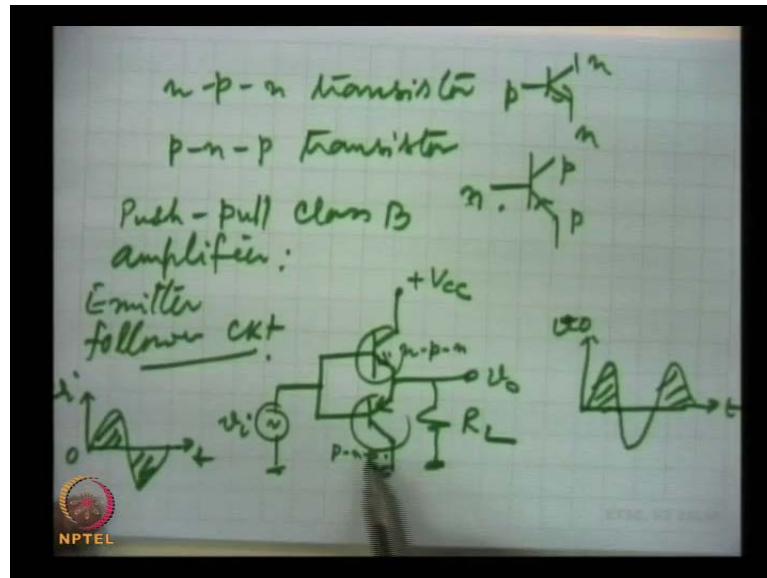 n-p-n transistor
p n n
p-n-p transistor
n p p
Push-pull class B
amplifier:
Emitter
follower ckt.
+Vcc
n-p-n
vo
vi
RL
p-n-
vi
0
t
vo
t
NPTEL